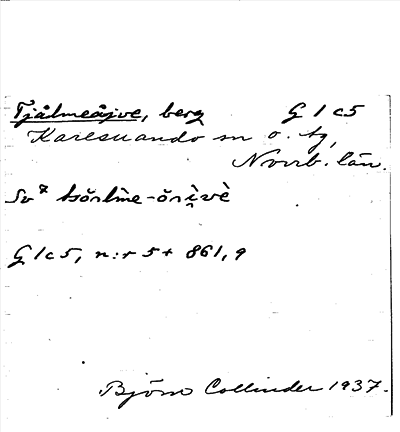 Tjålmeåjve, berg G 1 c5
Karesuando sn o. tg,
Norrb. län.
G 1c5, n:r 5+ 861,9
Björn Collinder 1937.